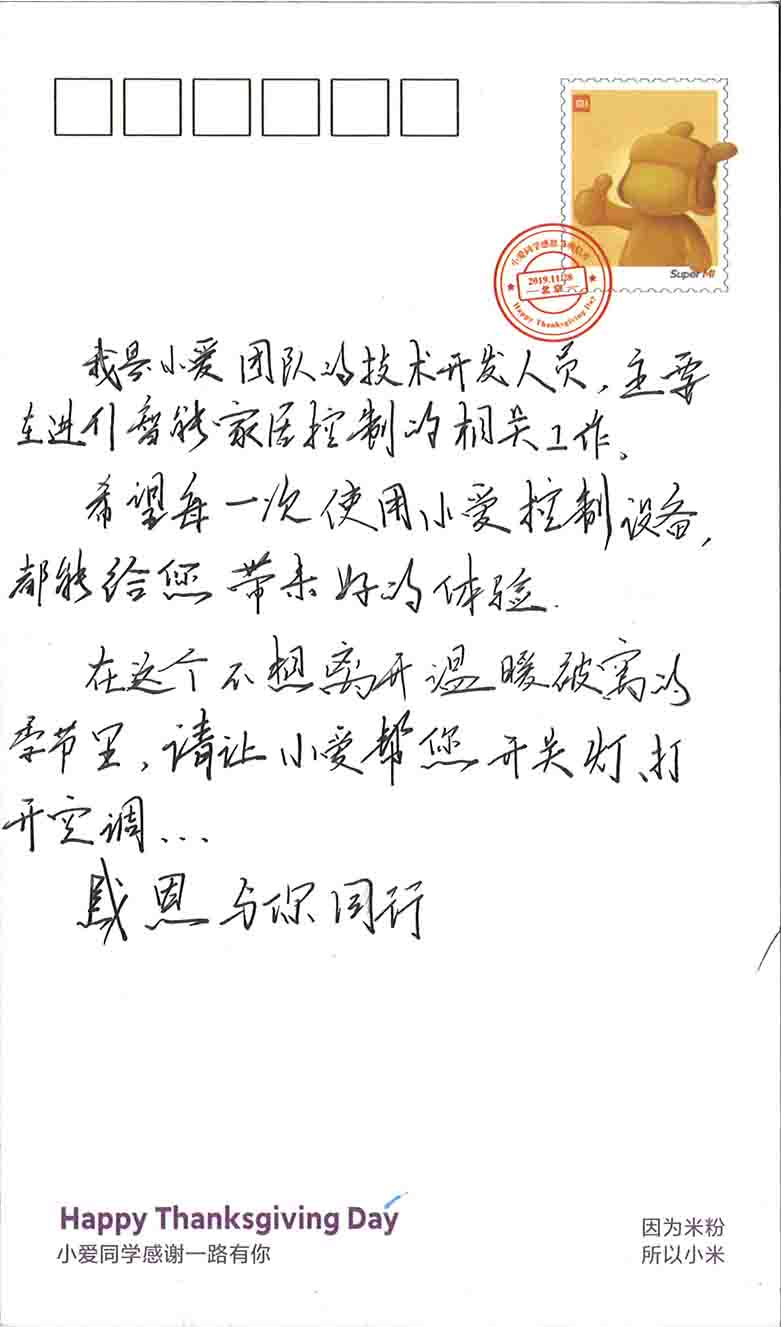 MI
Super MI
小爱同学感恩节明信片
2019.11.28
北京
Happy Thanksgiving Day
我是小爱团队的技术开发人员，主要
在进行智能家居控制的相关工作。
希望每一次使用小爱控制设备，
都能给您带来好的体验.
在这个不想离开温暖被窝的
季节里，请让小爱帮您开关灯、打
开空调...
感恩与你同行
Happy Thanksgiving Day
小爱同学感谢一路有你
因为米粉
所以小米